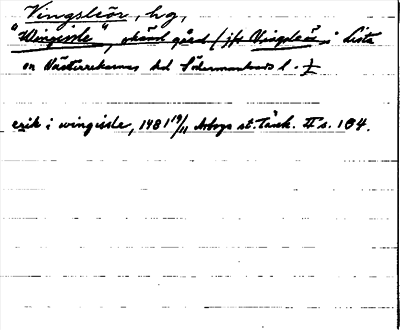 Vingsleör, hg,
"Wingisle", okänd gård (jfr Vingsleör i Lista
en Västerrekarnes hd Södermanlands l. I
erik i wingisle, 1481 19/11 Arboga st. Tänk. II s. 184.